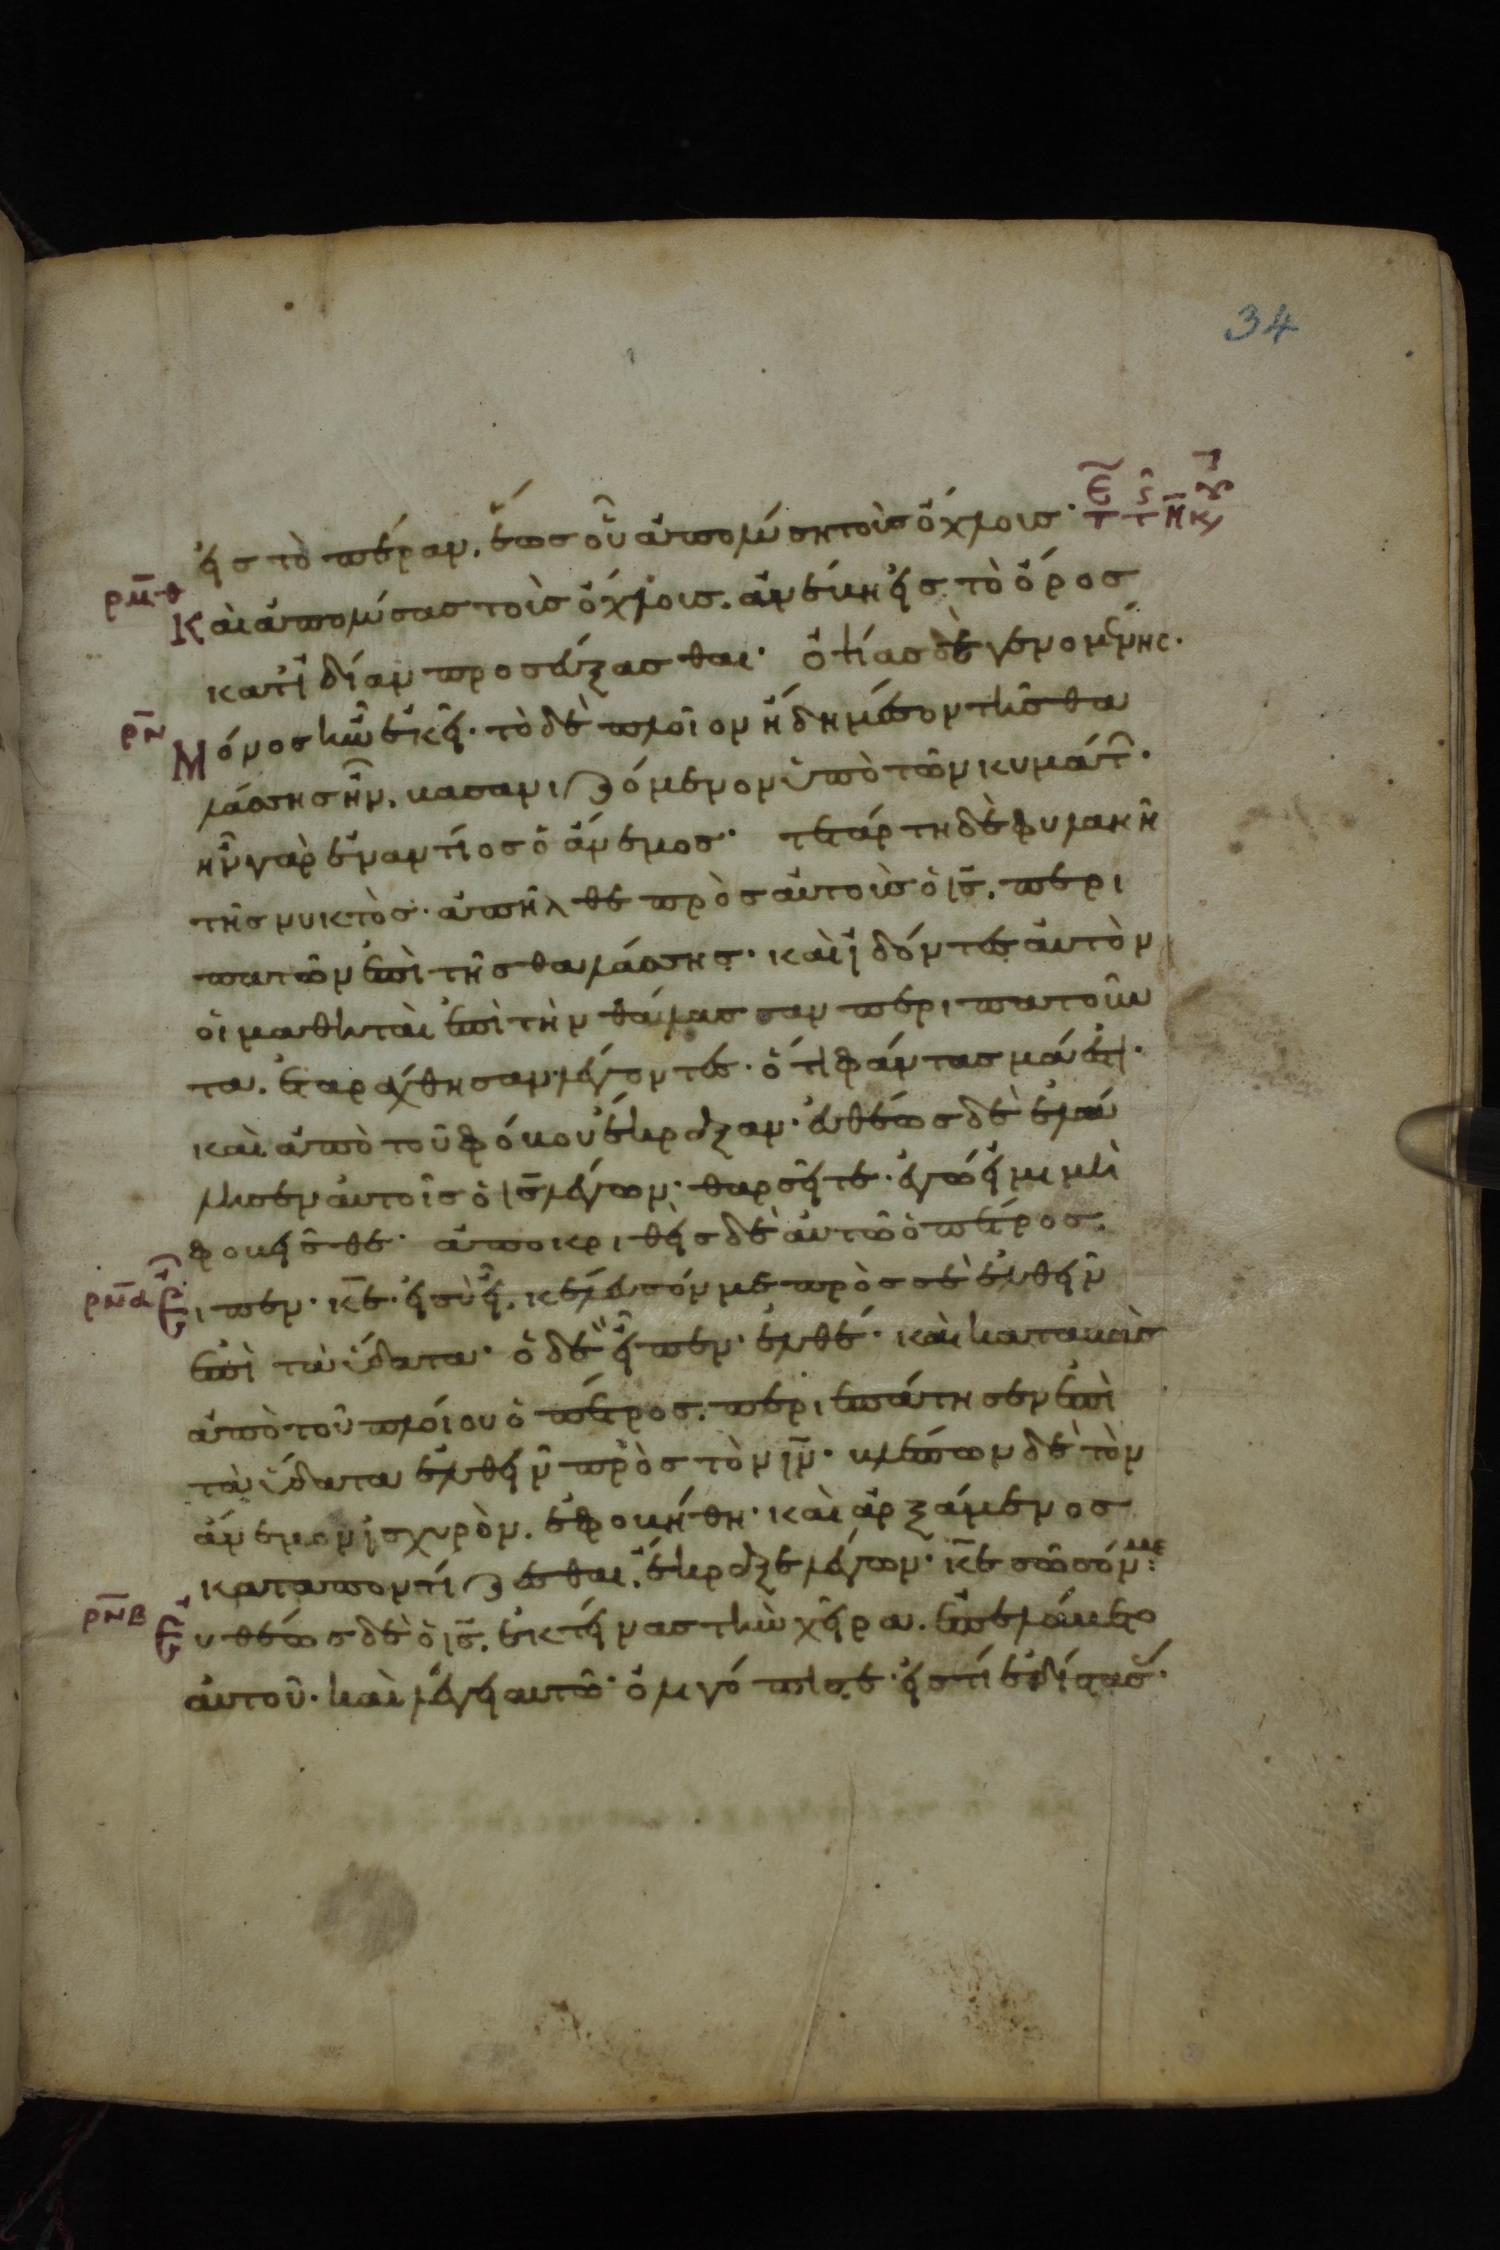 34
εἰς τὸ πέραν. ἕως οὗ ἀπολύσῃ τοὺς ὄχλους·
ρμθ Καὶ ἀπολύσας τοὺς ὄχλους. ἀνέβη εἰς τὸ ὄρος
κατ ἰδίαν προσεύξασθαι· ὀψίας δὲ γενομένης.
ρν Μόνος ἦν ἐκεῖ· τὸ δὲ πλοῖον ἤδη μέσον τῆς θα
λάσσης ἦν. βασανιζόμενον ὑπὸ τῶν κυμάτ·
ἦν γὰρ ἐναντίος ὁ ἄνεμος· τετάρτη δὲ φυλακῆ
τῆς νυκτὸς· ἀπῆλθε πρὸς αὐτοὺς ὁ ις. περι
πατῶν ἐπὶ τῆς θαλάσσης· καὶ ἰδόντες αὐτὸν
οἱ μαθηταὶ ἐπὶ τὴν θάλασσαν περιπατοῦν
τα. ἐταράχθησαν λέγοντες· ὅτι φάντασμά ἐστι·
καὶ ἀπὸ τοῦ φόβου ἔκραξαν· εὐθέως δὲ ἐλά
λησεν αὐτοῖς ὁ ις λέγων· θαρσεῖτε· ἐγώ εἰμι μὴ
φοβεῖσθε· ἀποκριθεὶς δὲ αὐτῶ ὁ πέτρος.
ρνα Εἶπεν· κε· εἰ σὺ εἶ. κέλευσόν με πρὸς σὲ ἐλθεῖν
ἐπὶ τὰ ὕδατα· ὁ δὲ εἶπεν· ἐλθέ· καὶ καταβὰς
ἀπὸ τοῦ πλοίου ὁ πέτρος. περιεπάτησεν ἐπὶ
τὰ ὕδατα ἐλθεῖν πρὸς τὸν ιν· βλέπων δὲ τὸν
ἄνεμον ἰσχυρὸν. ἐφοβήθη· καὶ ἀρξάμενος
καταποντίζεσθαι. ἔκραξε λέγων· κε σῶσόν με:
ρνβ Εὐθέως δὲ ὁ ις. ἐκτείνας τὴν χεῖρα. ἐπελάβετο
αὐτοῦ. καὶ λέγει αυτῶ· ὀλιγόπιστε· εἰς τί ἐδίστασ·